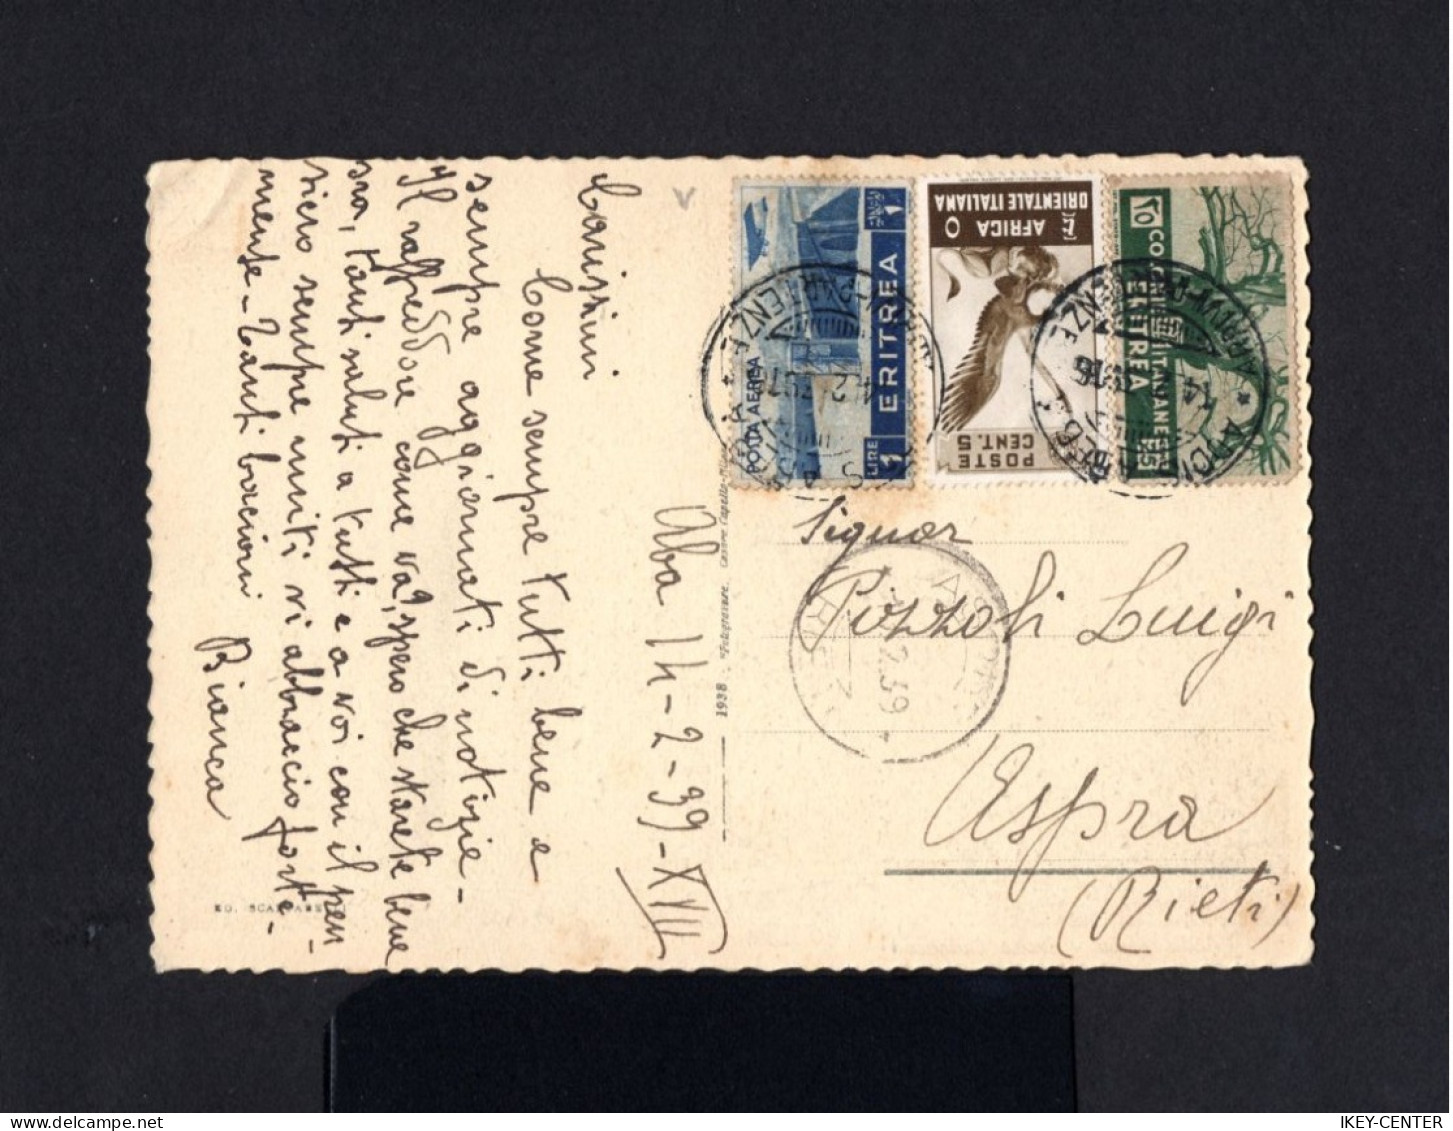 Aba 14-2-39-XVII
Carissimi
Come sempre tutti bene e
sempre aggiornati di notizie-
Il raffreddore come va?, spero che starete bene
tanti saluti a tutti e a voi con il pen-
siero sempre uniti vi abbraccio forte-
mente - Tanti bacioni
Bianca
Signor
Pozzoli Luigi
Aspra
(Rieti)
POSTA AEREA
LIRE 1
ERITREA
1
AFRICA
ORIENTALE ITALIANA
POSTE
CENT. 5
ERITREA
2.39
1938
ED. SCA
IKEY-CENTER